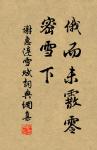 俄而未霰零
密雪下
谢惠连雪赋词典网集